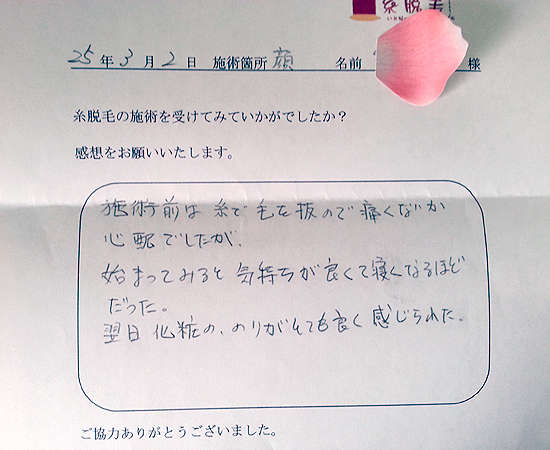 糸脱毛
25年3月2日 施術箇所 顔 名前 様
糸脱毛の施術を受けてみていかがでしたか？
感想をお願いいたします。
施術前は糸で毛を抜ので痛くないか
心配でしたが、
始まってみると気持ちが良くて寝くなるほど
だった。
翌日化粧の、のりがとても良く感じられた。
ご協力ありがとうございました。